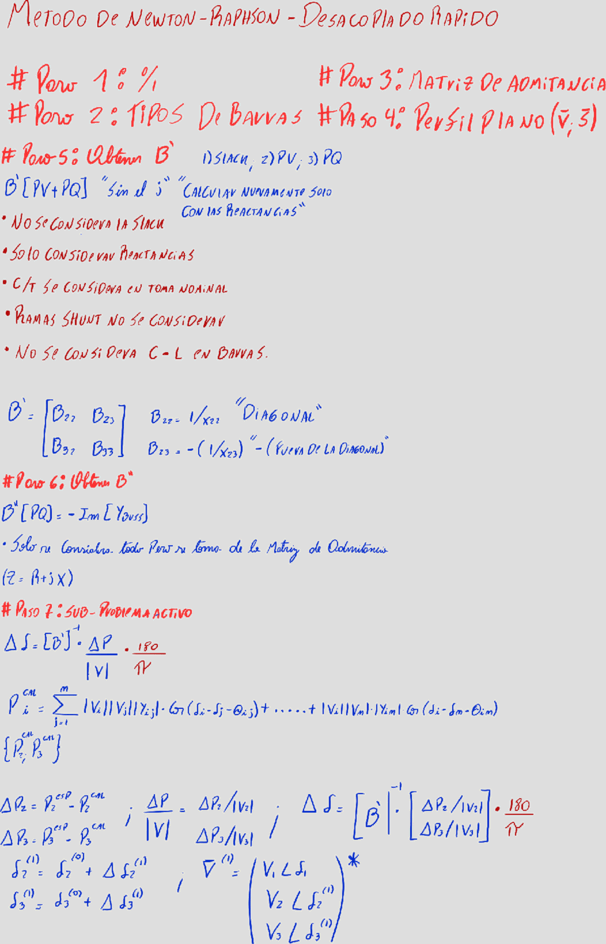 METODO DE NEWTON-RAPHSON-DESACOPLADO RAPIDO
# Paso 1: %
# Paso 2: TIPOS De BARRAS
# Paso 3: MATRIZ DE ADMITANCIA
# PASO 4: PerFil PlANO (V̄; S̄)
# Paso 5: Obtener B' 1) SlACK, 2) PV, 3) PQ
B' [PV+PQ] "Sin el j" "CAlCUlAR NUEVAMENTE SOlO
CON lAS REACTANCIAS"
• NO SE CONSIDERA lA SlACK
• SOlO CONSIDERAR REACTANCIAS
• C/T Se CONSIDERA EN TOMA NOMINAL
• RAMAS SHUNT NO SE CONSIDERAR
• NO Se CONSIDERA C-L EN BARRAS.
B' = [B₂₂ B₂₃ B₂₂ = 1/X₂₂ "DIAGONAL"
B₃₂ B₃₃] B₂₃ = -(1/X₂₃) "-(FUERA DE LA DIAGONAL)"
# Paso 6: Obtener B"
B" [PQ] = - Im [YBUSS]
• Solo se Considera todo Pero se toma de la Matriz de Admitancia
(Z = R+jX)
# PASO 7: SUB-PROBlEMA ACTIVO
Δδ = [B']⁻¹ · ΔP/|V| · 180/π
Pᵢᶜᵃˡ = Σⱼ₌₁ⁿ |Vᵢ||Vⱼ||Yᵢⱼ| · Cos (δᵢ-δⱼ-θᵢⱼ) + ..... + |Vᵢ||Vₙ|·|Yᵢₙ| Cos (δᵢ-δₙ-θᵢₙ)
{P₂ᶜᵃˡ; P₃ᶜᵃˡ}
ΔP₂ = P₂ᵉˢᵖ - P₂ᶜᵃˡ ; ΔP/|V| = ΔP₂/|V₂| ; Δδ = [B']⁻¹ · [ΔP₂/|V₂|] · 180/π
ΔP₃ = P₃ᵉˢᵖ - P₃ᶜᵃˡ ΔP₃/|V₃| ΔP₃/|V₃|
δ₂⁽¹⁾ = δ₂⁽⁰⁾ + Δδ₂⁽¹⁾ ; V̄⁽¹⁾ = (V₁∠δ₁ *
δ₃⁽¹⁾ = δ₃⁽⁰⁾ + Δδ₃⁽¹⁾ V₂∠δ₂⁽¹⁾
V₃∠δ₃⁽¹⁾)